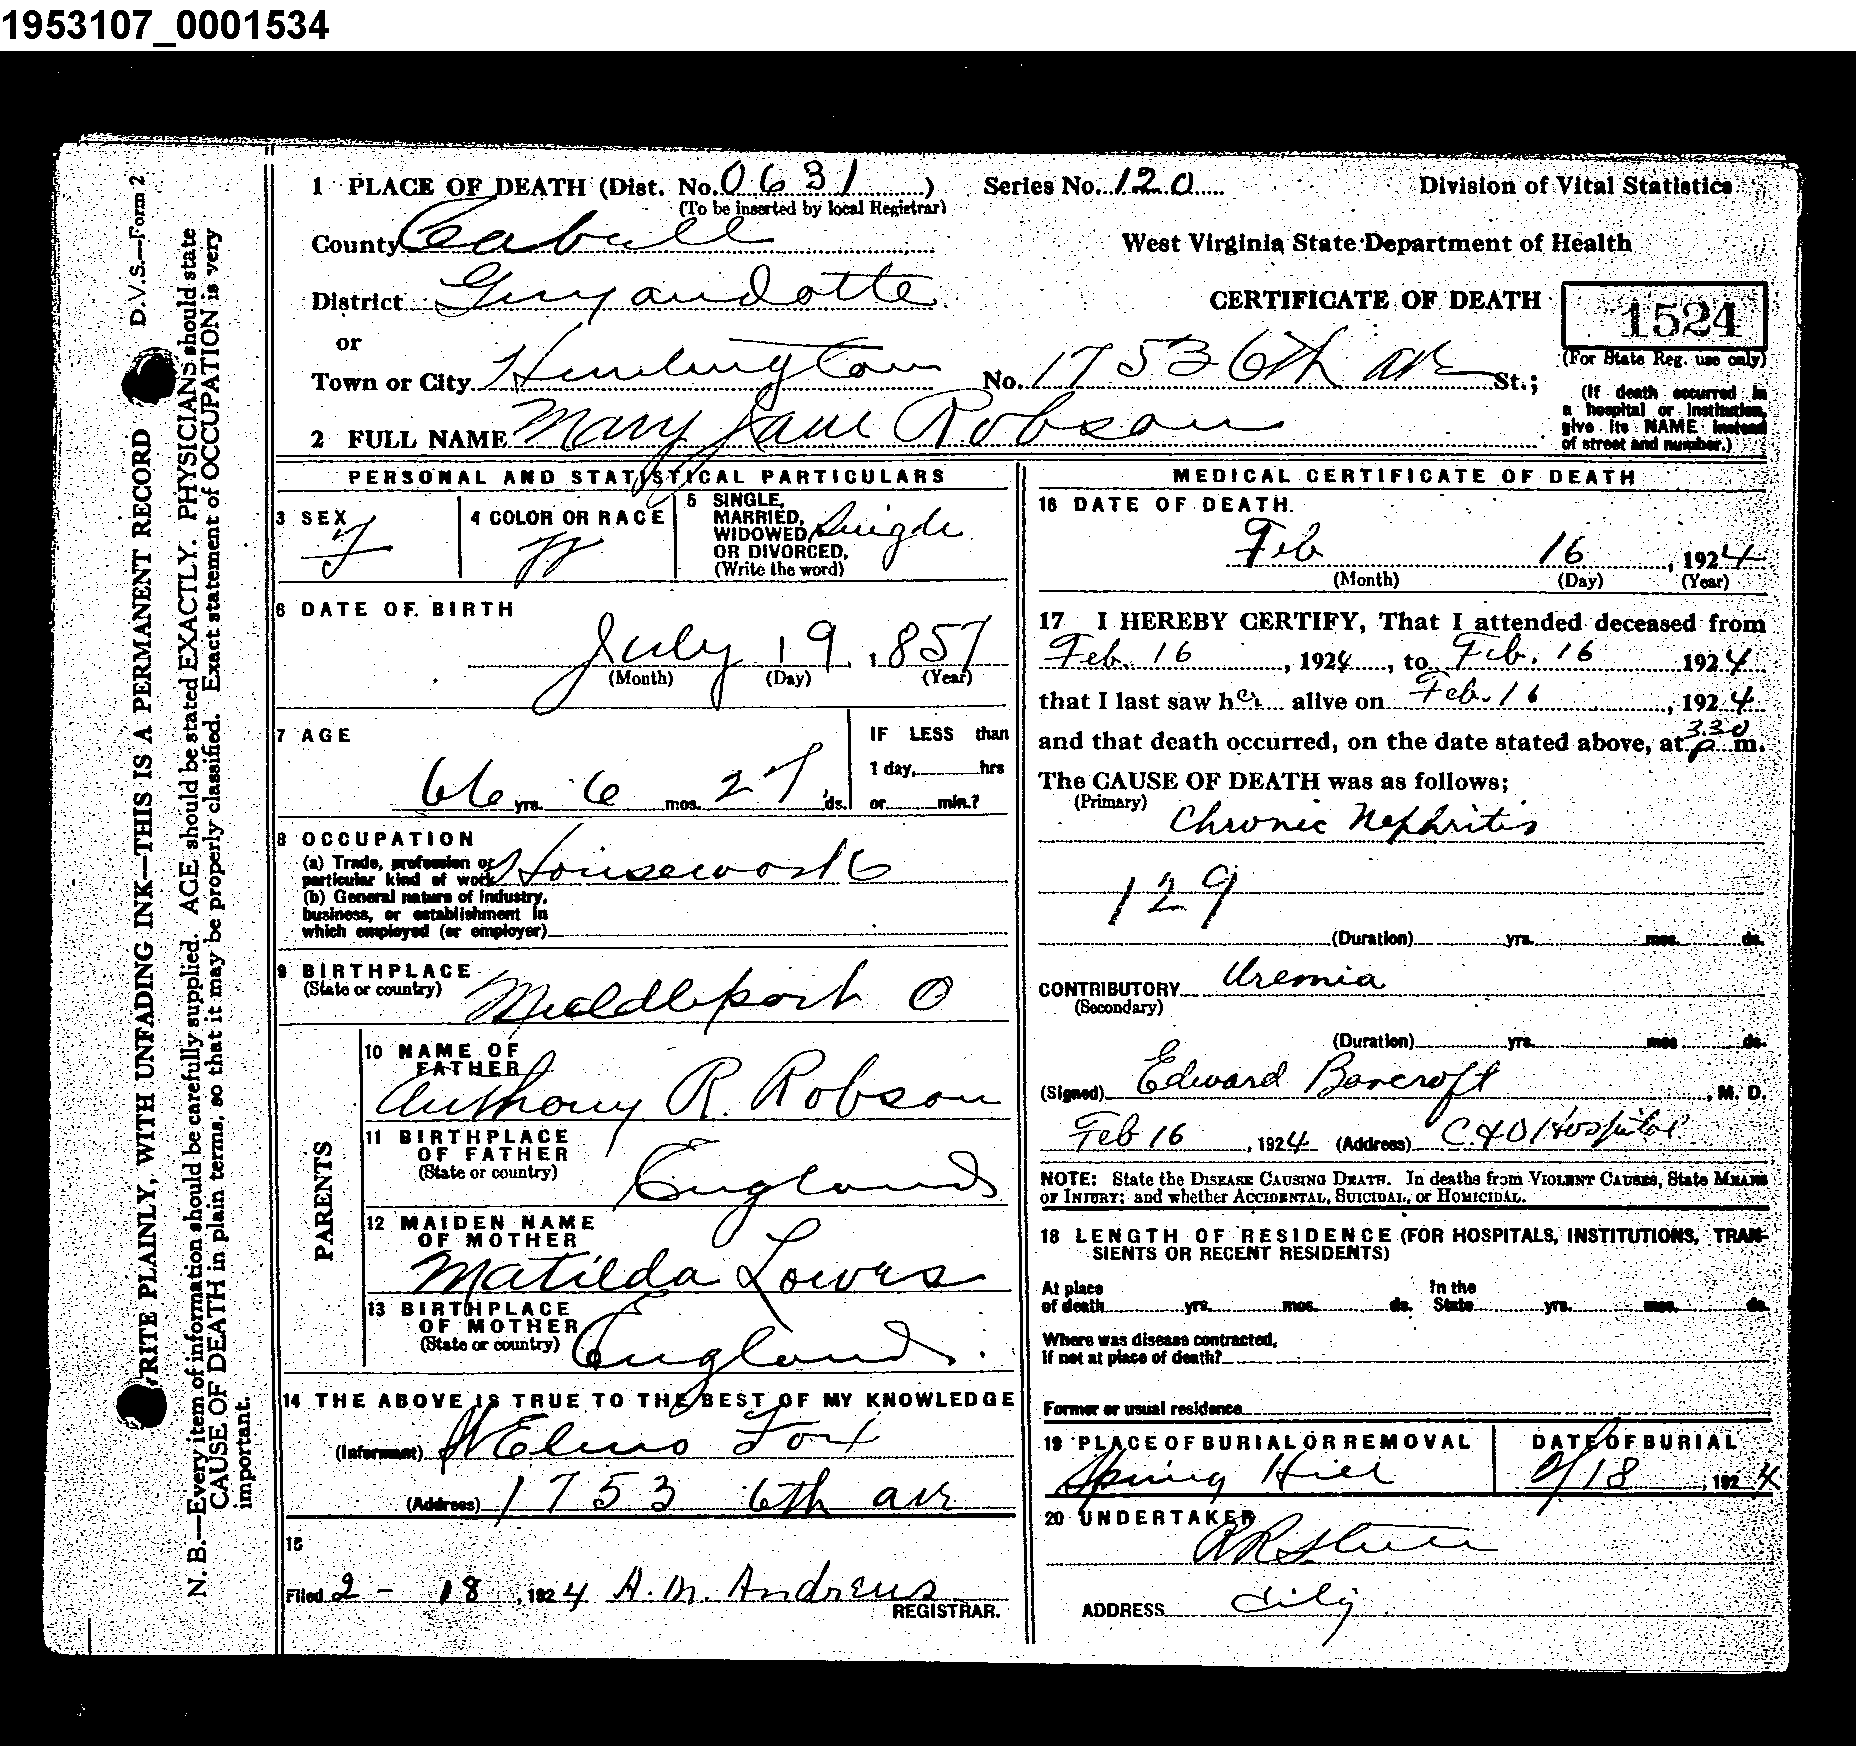 1953107_0001534
D.V.S.—Form 2
WRITE PLAINLY, WITH UNFADING INK—THIS IS A PERMANENT RECORD
N. B.—Every item of information should be carefully supplied. AGE should be stated EXACTLY. PHYSICIANS should state
CAUSE OF DEATH in plain terms, so that it may be properly classified. Exact statement of OCCUPATION is very
important.
1 PLACE OF DEATH (Dist. No. 0631 ) Series No. 120 Division of Vital Statistics
(To be inserted by local Registrar)
County Cabell West Virginia State Department of Health
District Guyandotte CERTIFICATE OF DEATH 1524
or
(For State Reg. use only)
Town or City Huntington No. 1753 6th ave St.;
(If death occurred in
a hospital or institution,
give its NAME instead
of street and number.)
2 FULL NAME Mary Jane Robson
PERSONAL AND STATISTICAL PARTICULARS
3 SEX F
4 COLOR OR RACE W
5 SINGLE,
MARRIED,
WIDOWED, Single
OR DIVORCED,
(Write the word)
6 DATE OF BIRTH
July 19, 1857
(Month) (Day) (Year)
7 AGE
66 yrs. 6 mos. 27 ds.
IF LESS than
1 day, hrs
or min.?
8 OCCUPATION
(a) Trade, profession or
particular kind of work Housework
(b) General nature of industry,
business, or establishment in
which employed (or employer)
9 BIRTHPLACE
(State or country) Middleport O
PARENTS
10 NAME OF
FATHER
Anthony R. Robson
11 BIRTHPLACE
OF FATHER
(State or country) England
12 MAIDEN NAME
OF MOTHER
Matilda Lowes
13 BIRTHPLACE
OF MOTHER
(State or country) England.
14 THE ABOVE IS TRUE TO THE BEST OF MY KNOWLEDGE
(Informant) Elmo Fox
(Address) 1753 6th ave
15
Filed 2 - 18, 1924 A. M. Andrews
REGISTRAR.
MEDICAL CERTIFICATE OF DEATH
16 DATE OF DEATH.
Feb 16, 1924
(Month) (Day) (Year)
17 I HEREBY CERTIFY, That I attended deceased from
Feb. 16, 1924, to Feb. 16 1924
that I last saw her alive on Feb. 16, 1924
and that death occurred, on the date stated above, at 3.30 p. m.
The CAUSE OF DEATH was as follows;
(Primary)
Chronic Nephritis
129
(Duration) yrs. mos. ds.
CONTRIBUTORY Uremia
(Secondary)
(Duration) yrs. mos ds.
(Signed) Edward Bancroft, M. D.
Feb 16, 1924 (Address) C & O Hospital
NOTE: State the DISEASE CAUSING DEATH. In deaths from VIOLENT CAUSES, State MEANS
OF INJURY; and whether ACCIDENTAL, SUICIDAL, or HOMICIDAL.
18 LENGTH OF RESIDENCE (FOR HOSPITALS, INSTITUTIONS, TRAN-
SIENTS OR RECENT RESIDENTS)
At place In the
of death yrs. mos. ds. State yrs. mos. ds.
Where was disease contracted,
if not at place of death?
Former or usual residence
19 PLACE OF BURIAL OR REMOVAL
Spring Hill
DATE OF BURIAL
2/18, 1924
20 UNDERTAKER
ADDRESS City